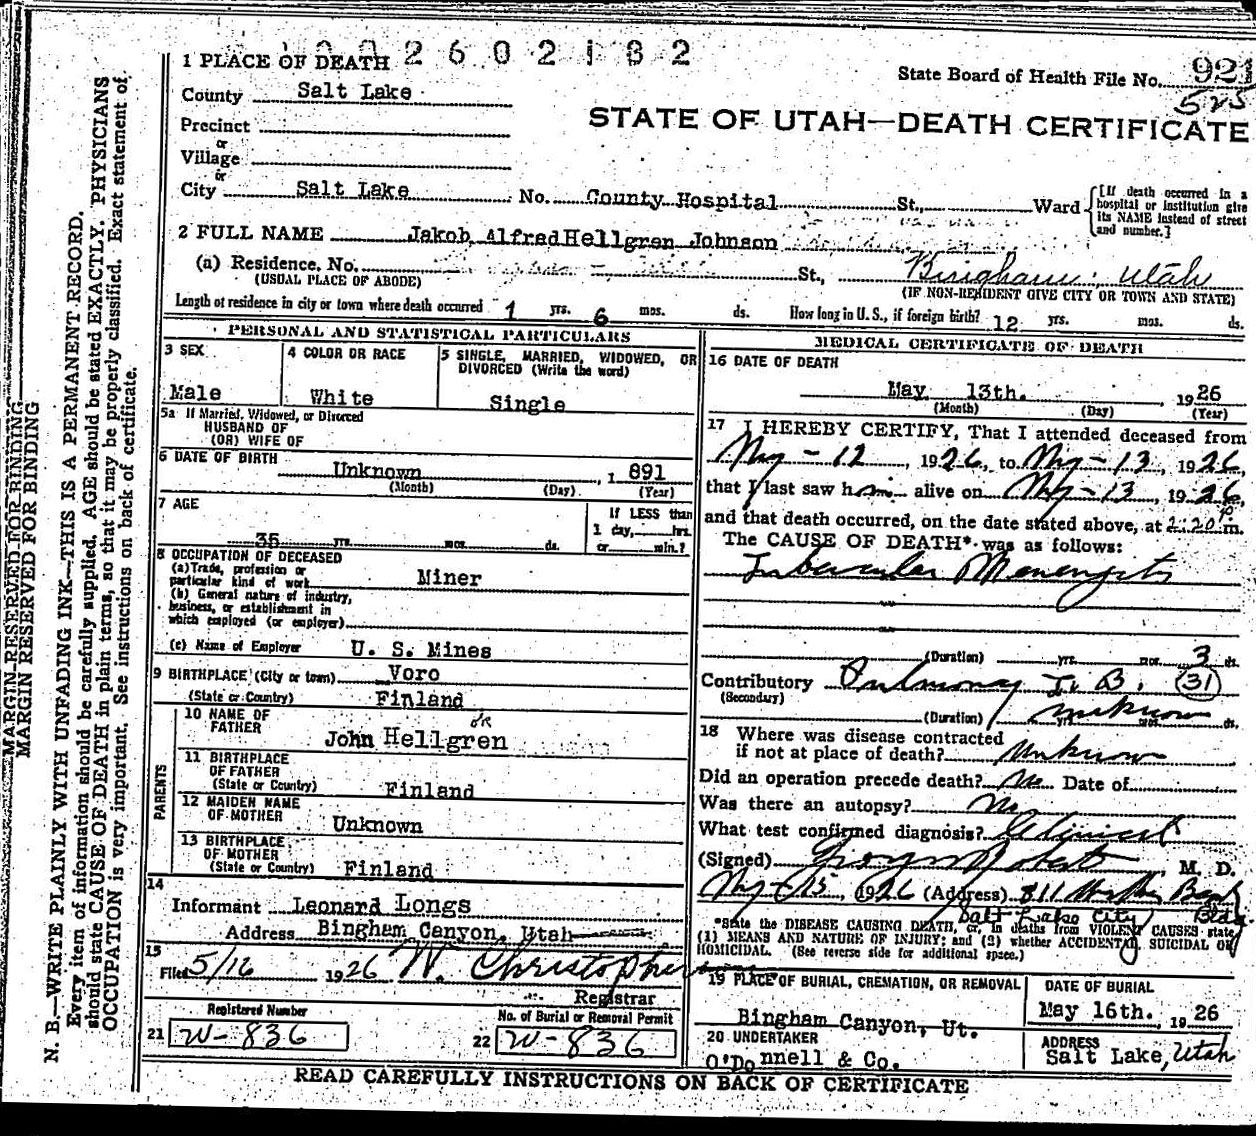 2602182
1 PLACE OF DEATH
State Board of Health File No. 921
525
County Salt Lake
STATE OF UTAH—DEATH CERTIFICATE
Precinct
or
Village
or
City Salt Lake No. County Hospital St., Ward
[If death occurred in a hospital or institution give its NAME instead of street and number.]
2 FULL NAME Jakob Alfred Hellgren Johnson
(a) Residence. No. St., Bingham, Utah
(USUAL PLACE OF ABODE) (IF NON-RESIDENT GIVE CITY OR TOWN AND STATE)
Length of residence in city or town where death occurred 1 yrs. 6 mos. ds. How long in U. S., if foreign birth? 12 yrs. mos. ds.
PERSONAL AND STATISTICAL PARTICULARS
3 SEX
Male
4 COLOR OR RACE
White
5 SINGLE, MARRIED, WIDOWED, OR
DIVORCED (Write the word)
Single
5a If Married, Widowed, or Divorced
HUSBAND OF
(OR) WIFE OF
6 DATE OF BIRTH
Unknown , 1 891
(Month) (Day) (Year)
7 AGE
35 yrs. mos. ds.
If LESS than
1 day, hrs.
or min.?
8 OCCUPATION OF DECEASED
(a) Trade, profession or
particular kind of work Miner
(b) General nature of industry,
business, or establishment in
which employed (or employer)
(c) Name of Employer U. S. Mines
9 BIRTHPLACE (City or town) Voro
(State or Country) Finland
PARENTS
10 NAME OF
FATHER
or
John Hellgren
11 BIRTHPLACE
OF FATHER
(State or Country) Finland
12 MAIDEN NAME
OF MOTHER
Unknown
13 BIRTHPLACE
OF MOTHER
(State or Country) Finland
14
Informant Leonard Longs
Address Bingham Canyon, Utah
15
Filed 5/16 1926 W. Christopher
Registrar
Registered Number
21 W-836
No. of Burial or Removal Permit
22 W-836
MEDICAL CERTIFICATE OF DEATH
16 DATE OF DEATH
May 13th. , 1926
(Month) (Day) (Year)
17 I HEREBY CERTIFY, That I attended deceased from
May-12, 1926, to May-13, 1926,
that I last saw him alive on May-13, 1926,
and that death occurred, on the date stated above, at 2:20 P m.
The CAUSE OF DEATH* was as follows:
Tubercular Menengits
(Duration) yrs. mos. 3 ds.
Contributory Pulmonay T. B. (31)
(Secondary)
(Duration) yrs. unknow mos. ds.
18 Where was disease contracted
if not at place of death? Unknow
Did an operation precede death? No Date of
Was there an autopsy? No
What test confirmed diagnosis? Clinical
(Signed) M. D.
May-15, 1926 (Address) 811 Bank
Salt Lake City Bldg
*State the DISEASE CAUSING DEATH, or, in deaths from VIOLENT CAUSES state,
(1) MEANS AND NATURE OF INJURY; and (2) whether ACCIDENTAL, SUICIDAL OR
HOMICIDAL. (See reverse side for additional space.)
19 PLACE OF BURIAL, CREMATION, OR REMOVAL
Bingham Canyon, Ut.
DATE OF BURIAL
May 16th. , 1926
20 UNDERTAKER
O'Donnell & Co.
ADDRESS
Salt Lake, Utah
READ CAREFULLY INSTRUCTIONS ON BACK OF CERTIFICATE
MARGIN RESERVED FOR BINDING
MARGIN RESERVED FOR BINDING
N. B.—WRITE PLAINLY WITH UNFADING INK—THIS IS A PERMANENT RECORD.
Every item of information should be carefully supplied. AGE should be stated EXACTLY. PHYSICIANS
should state CAUSE OF DEATH in plain terms, so that it may be properly classified. Exact statement of
OCCUPATION is very important. See instructions on back of certificate.